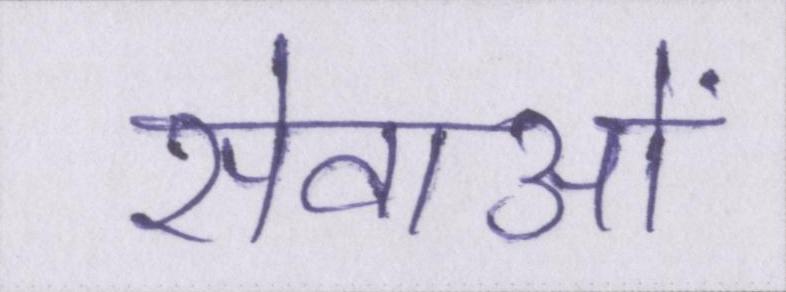 सेवाओं